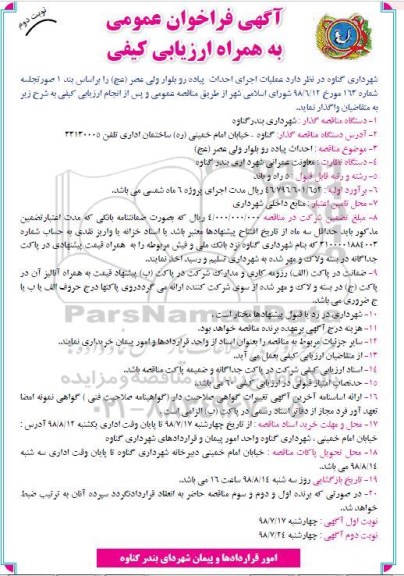 نوبت دوم
آگهی فراخوان عمومی
به همراه ارزیابی کیفی
شهرداری گناوه در نظر دارد عملیات اجرای احداث پیاده رو بلوار ولی عصر (عج) را براساس بند ۱ صورتجلسه
شماره ۱۶۳ مورخ ۹۸/۶/۱۲ شورای اسلامی شهر از طریق مناقصه عمومی و پس از انجام ارزیابی کیفی به شرح زیر
به متقاضیان واگذار نماید.
۱- دستگاه مناقصه گذار : شهرداری بندرگناوه
۲- آدرس دستگاه مناقصه گذار: گناوه - خیابان امام خمینی (ره) ساختمان اداری تلفن ۳۳۱۳۰۰۰۵
۳- موضوع مناقصه : احداث پیاده رو بلوار ولی عصر (عج)
۴- دستگاه نظارت : معاونت عمرانی شهرداری بندر گناوه
۵- رشته و رتبه قابل قبول : ۵ راه و باند
۶- برآورد اولیه : ۴۶/۷۹۶/۶۰۱/۶۵۲ ریال مدت اجرای پروژه ۶ ماه شمسی می باشد.
۷- محل تامین اعتبار : منابع داخلی شهرداری
۸- مبلغ تضمین شرکت در مناقصه ۴/۰۰۰/۰۰۰/۰۰۰ ریال که بصورت ضمانتنامه بانکی که مدت اعتبارتضمین
مذکور باید حداقل سه ماه از تاریخ افتتاح پیشنهادها معتبر باشد یا اسناد خزانه یا واریز نقدی به حساب شماره
۳۱۰۰۰۰۱۸۸۴۰۰۳ که بنام شهرداری گناوه نزد بانک ملی و فیش مربوطه را به همراه قیمت پیشنهادی در پاکت
جداگانه در بسته ولاک و مهر شده به شهرداری تسلیم و رسید اخذ نمایند.
۹- ضمانت در پاکت (الف) رزومه کاری و مدارک شرکت در پاکت (ب) پیشنهاد قیمت به همراه آنالیز آن در
پاکت (ج) در بسته و لاک و مهر شده از سوی شرکت کننده ارائه می گردد.روی پاکتها درج حروف الف یا ب یا
ج ضروری می باشد.
۱۰- شهرداری در رد یا قبول پیشنهادها مختار است.
۱۱- هزینه درج آگهی برعهده برنده مناقصه خواهد بود.
۱۲- سایر جزئیات مربوط به مناقصه را بعنوان اسناد از واحد قراردادها و امور پیمان خریداری نمایند.
۱۳- از متقاضیان ارزیابی کیفی بعمل می آید.
۱۴- اسناد ارزیابی کیفی شرکت در پاکت جداگانه و ضمیمه پاکت مناقصه باشد.
۱۵- حدنصاب امتیاز قبولی در ارزیابی کیفی ۶۰ می باشد.
۱۶- ارائه اساسنامه آخرین آگهی تغییرات گواهی صلاحیت دار (گواهینامه صلاحیت فنی ) گواهی نمونه امضا
تعهد آور فرد مجاز از دفاتر اسناد رسمی در پاکت (ب) الزامی است .
۱۷- محل و مهلت خرید اسناد مناقصه : از تاریخ چهارشنبه ۹۸/۷/۱۷ تا پایان وقت اداری یکشنبه ۹۸/۸/۱۲ آدرس :
خیابان امام خمینی ، شهرداری گناوه واحد امور پیمان و قراردادهای شهرداری گناوه
۱۸- محل تحویل پاکات مناقصه : خیابان امام خمینی دبیرخانه شهرداری گناوه تا پایان وقت اداری سه شنبه
۹۸/۸/۱۴ می باشد.
۱۹- تاریخ بازگشایی روز سه شنبه ۹۸/۸/۱۴ ساعت ۱۶ می باشد.
۲۰- در صورتی که برنده اول و دوم و سوم مناقصه حاضر به انعقاد قراردادنگردد سپرده آنان به ترتیب ضبط
خواهد شد.
نوبت اول آگهی : چهارشنبه ۹۸/۷/۱۷
نوبت دوم آگهی : چهارشنبه ۹۸/۷/۲۴
امور قراردادها و پیمان شهردای بندر گناوه